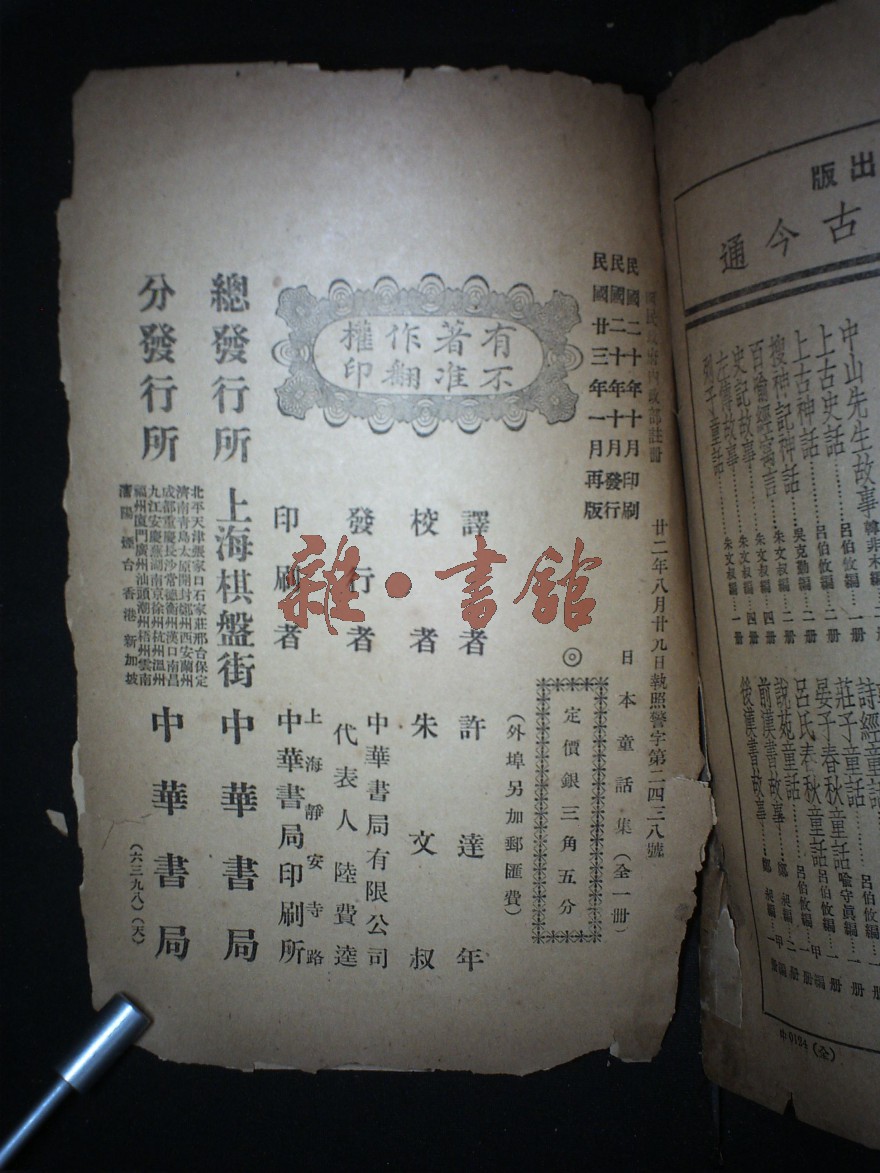 民國二十年十月印刷
民國二十年十月發行
民國廿三年一月再版
國民政府內政部註冊
廿二年八月廿九日執照警字第二四三八號
有著作權
不准翻印
日本童話集(全一冊)
◎
定價銀三角五分
(外埠另加郵匯費)
譯者 許達年
校者 朱文叔
發行者 中華書局有限公司
代表人陸費逵
印刷者 上海靜安寺路
中華書局印刷所
總發行所 上海棋盤街 中華書局
分發行所
北平天津張家口石家莊邢台保定
濟南青島太原開封鄭州西安蘭州
成都重慶長沙常德衡州漢口南昌
九江安慶蕪湖南京徐州杭州溫州
福州廈門廣州汕頭潮州梧州雲南
瀋陽煙台香港新加坡
中華書局
(六三九八)(天)
雜·書館
出版
古今通
中山先生故事
上古史話 呂伯攸編 二冊
上古神話 吳克勤編 一冊
搜神記神話 呂伯攸編 二冊
百喻經寓言 朱文叔編 二冊
史記故事 朱文叔編 四冊
左傳故事 朱文叔編
列子童話
詩經童話 呂伯攸編 一冊
莊子童話 呂伯攸編 一冊
晏子春秋童話 喻守真編
呂氏春秋童話 呂伯攸編
說苑童話 呂伯攸編 一冊
前漢書故事
後漢書故事
中0134(全)